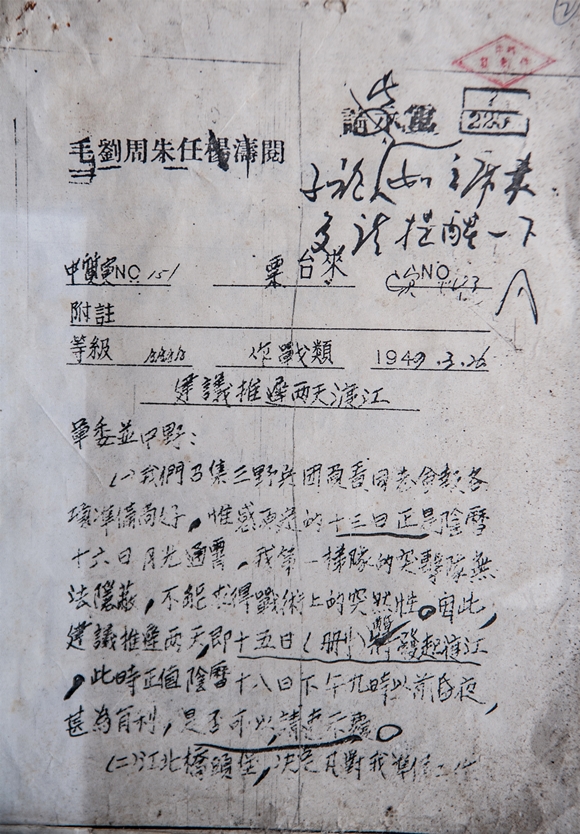 2
复制件
225
毛劉周朱任楊濤閱
主席
提醒一下
中
NO 151
粟台來
NO
附註
等級
作戰類
1949.3.26
建議推遲兩天渡江
軍委並中野：
(一)我們召集三野兵團負責同志會報各
項準備尚好，惟感原定的十三日正是陰曆
十六日月光通霄，我第一梯隊的突擊隊無
法隱蔽，不能求得戰術上的突然性。因此，
建議推遲兩天，即十五日(刪)發起渡江
，此時正值陰曆十八日下午九時以前昏夜，
甚為有利，是否可以，請速示遵。
(二)江北橋頭堡，決定月對我